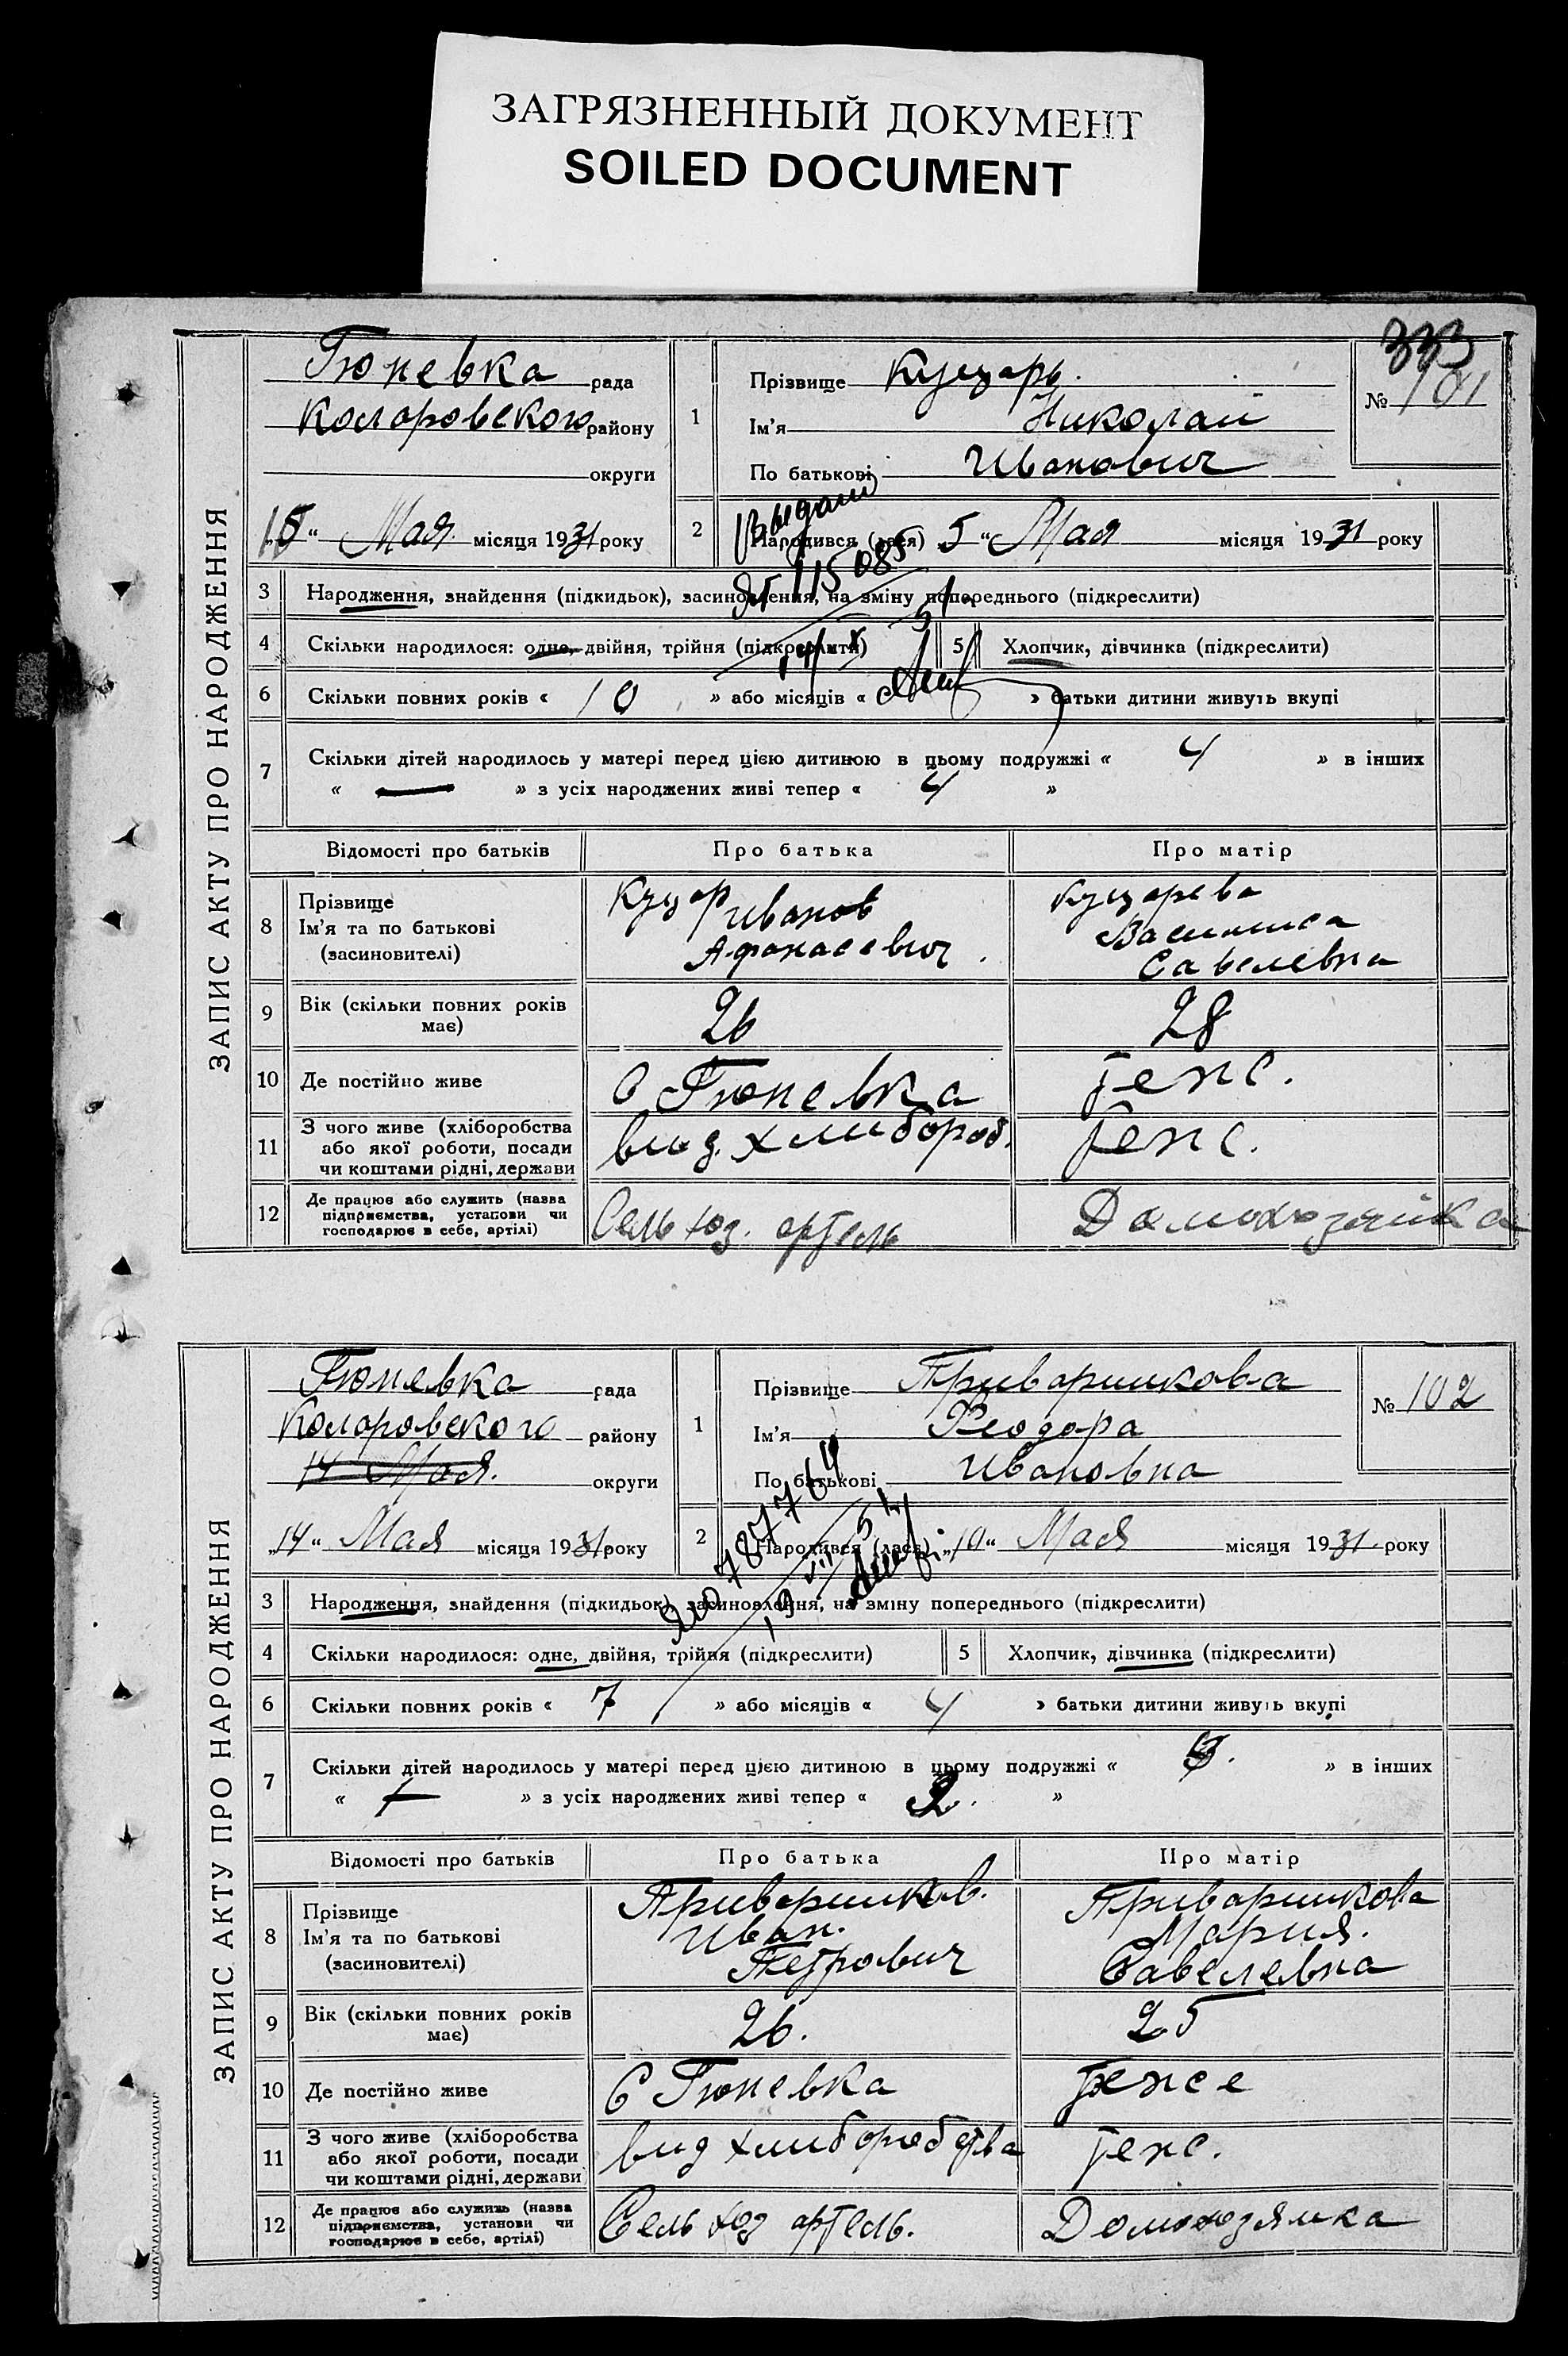 ЗАГРЯЗНЕННЫЙ ДОКУМЕНТ
SOILED DOCUMENT
333
ЗАПИС АКТУ ПРО НАРОДЖЕННЯ
Гюневка рада
Коларовского району
округи
1 Прізвище Куцарь.
Ім'я Николай
По батькові Иванович
№ 101
„15“ Мая місяця 1931 року
2 Народився (лася) 5 “ Мая місяця 1931 року
Выдано
115085
3 Народження, знайдення (підкидьок), засиновлення, на зміну попереднього (підкреслити)
4 Скільки народилося: одне, двійня, трійня (підкреслити) 5 Хлопчик, дівчинка (підкреслити)
6 Скільки повних років « 10 » або місяців « » батьки дитини живуть вкупі
7 Скільки дітей народилось у матері перед цією дитиною в цьому подружжі « 4 » в інших
« — » з усіх народжених живі тепер « 4 »
Відомості про батьків Про батька Про матір
8 Прізвище
Ім'я та по батькові
(засиновителі)
Куцар
Иванов
Афонасевич.
Куцарева
Василиса
Савелевна
9 Вік (скільки повних років
має)
26 28
10 Де постійно живе С Гюневка тежс.
11 З чого живе (хліборобства
або якої роботи, посади
чи коштами рідні, держави
вид. хлибороб. тежс.
12 Де працює або служить (назва
підприємства, установи чи
господарює в себе, артілі)
Сель хоз. артель Домохозяйка
ЗАПИС АКТУ ПРО НАРОДЖЕННЯ
Гюневка рада
Коларовского району
14 Мая. округи
1 Прізвище Приваришкова
Ім'я Феодора
По батькові Ивановна
№ 102
„14“ Мая місяця 1931 року
2 Народився (лася) „10“ Мая місяця 1931 року
787764
3 Народження, знайдення (підкидьок), засиновлення, на зміну попереднього (підкреслити)
4 Скільки народилося: одне, двійня, трійня (підкреслити) 5 Хлопчик, дівчинка (підкреслити)
6 Скільки повних років « 7 » або місяців « 4 » батьки дитини живуть вкупі
7 Скільки дітей народилось у матері перед цією дитиною в цьому подружжі « » в інших
« — » з усіх народжених живі тепер « 2. »
Відомості про батьків Про батька Про матір
8 Прізвище
Ім'я та по батькові
(засиновителі)
Приваришков.
Иван.
Петрович
Приваришкова
Мария.
Савелевна
9 Вік (скільки повних років
має)
26. 25
10 Де постійно живе С Гюневка тежсе
11 З чого живе (хліборобства
або якої роботи, посади
чи коштами рідні, держави
вид хлиборобства тежс.
12 Де працює або служить (назва
підприємства, установи чи
господарює в себе, артілі)
Сель хоз артель. Домохозямка